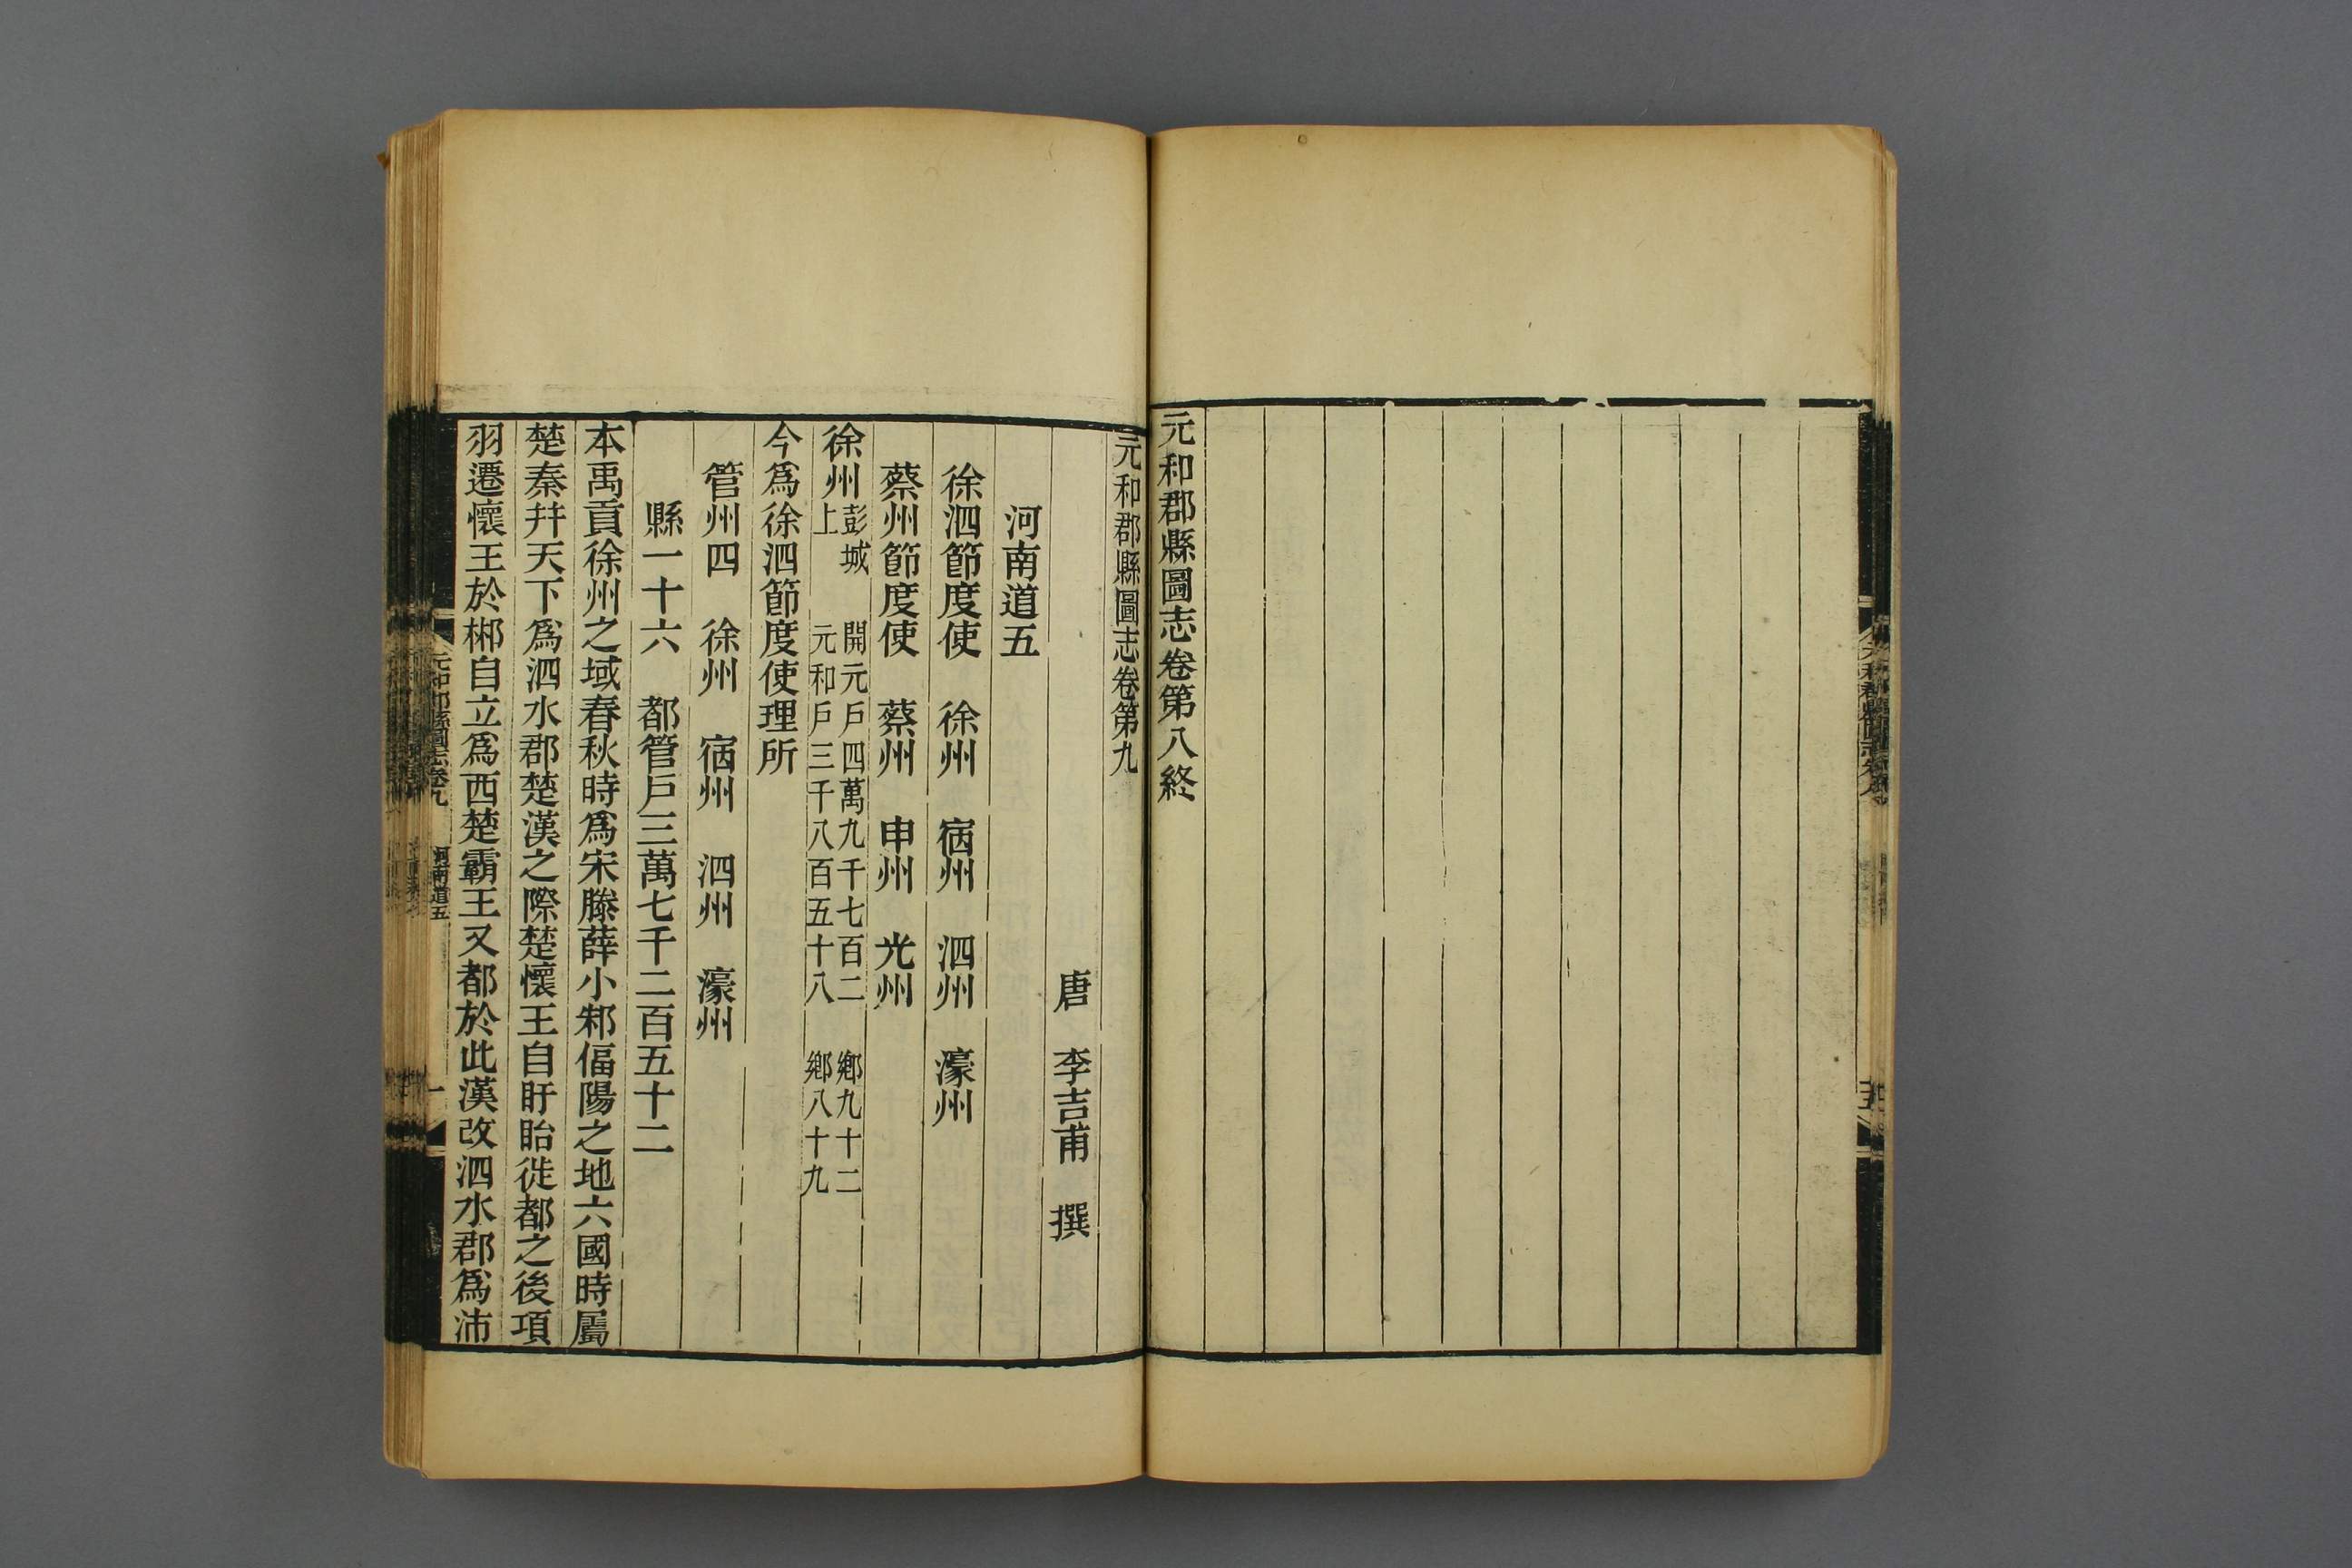 元和郡縣圖志卷第八終
元和郡縣圖志卷第九
唐 李吉甫 撰
河南道五
徐泗節度使 徐州 宿州 泗州 濠州
蔡州節度使 蔡州 申州 光州
徐州 彭城 開元戶四萬九千七百二 鄉九十二
上 元和戶三千八百五十八 鄉八十九
今爲徐泗節度使理所
管州四 徐州 宿州 泗州 濠州
縣一十六 都管戶三萬七千二百五十二
本禹貢徐州之域春秋時爲宋滕薛小邾偪陽之地六國時屬
楚秦幷天下爲泗水郡楚漢之際楚懷王自盱眙徙都之後項
羽遷懷王於郴自立爲西楚霸王又都於此漢改泗水郡爲沛
元和郡縣圖志卷九 河南道五 一